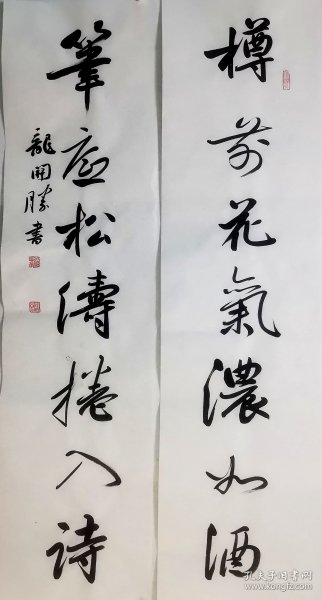 樽前花氣濃如酒
筆底松濤捲入詩
龍開勝書
孔夫子旧书网